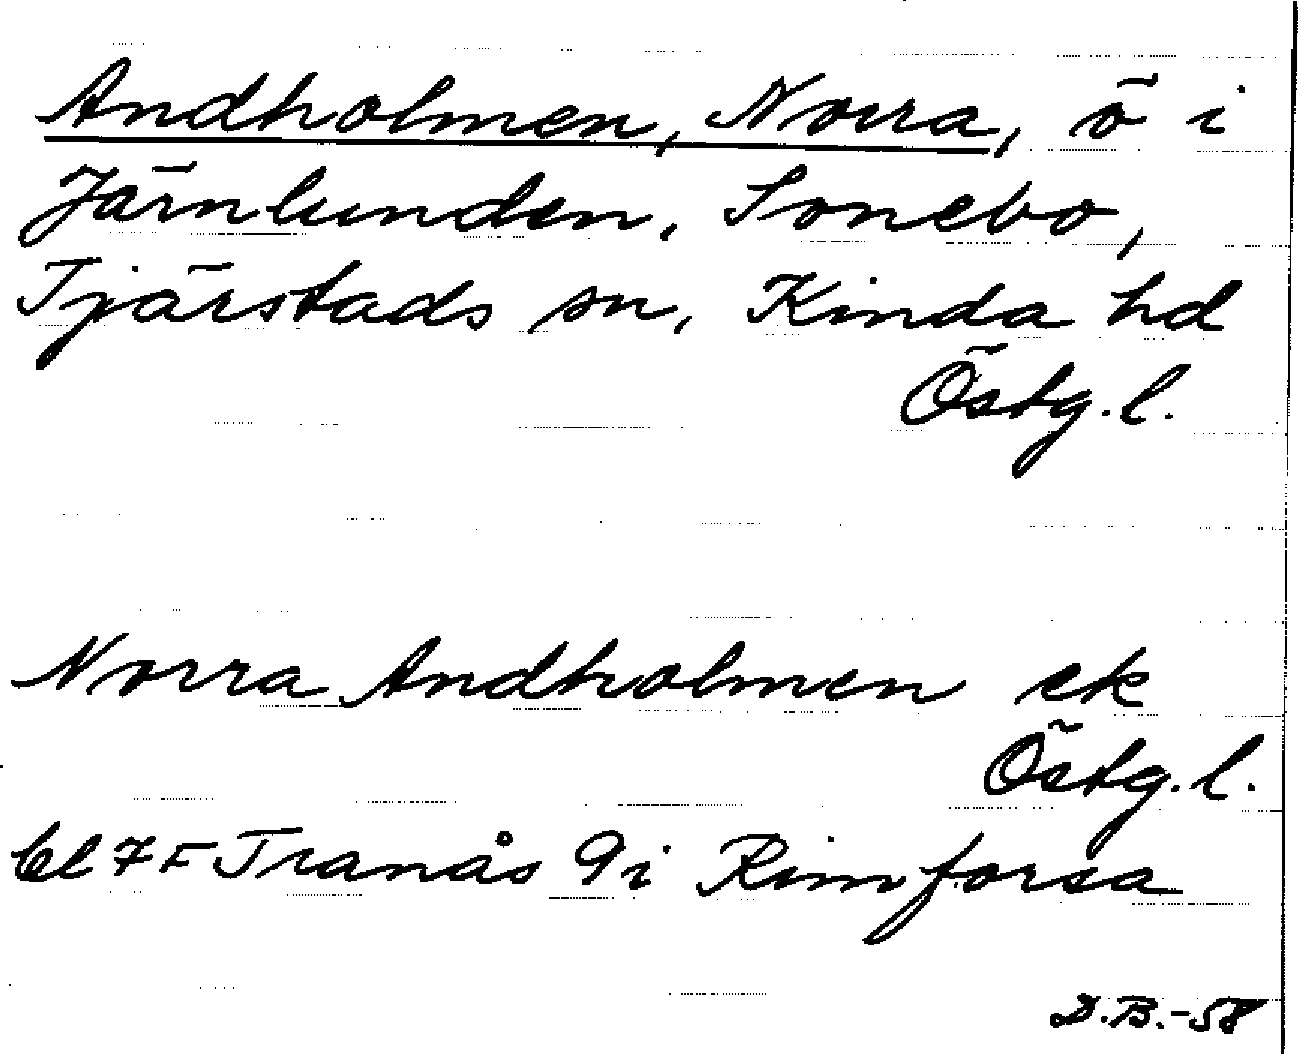 Andholmen, Norra, ö i
Järnlunden, Sonebo,
Tjärstads sn, Kinda hd
Östg. l.
Norra Andholmen ek
Östg. l.
bl 7 F Tranås 9i Rimforsa
D.B.-58